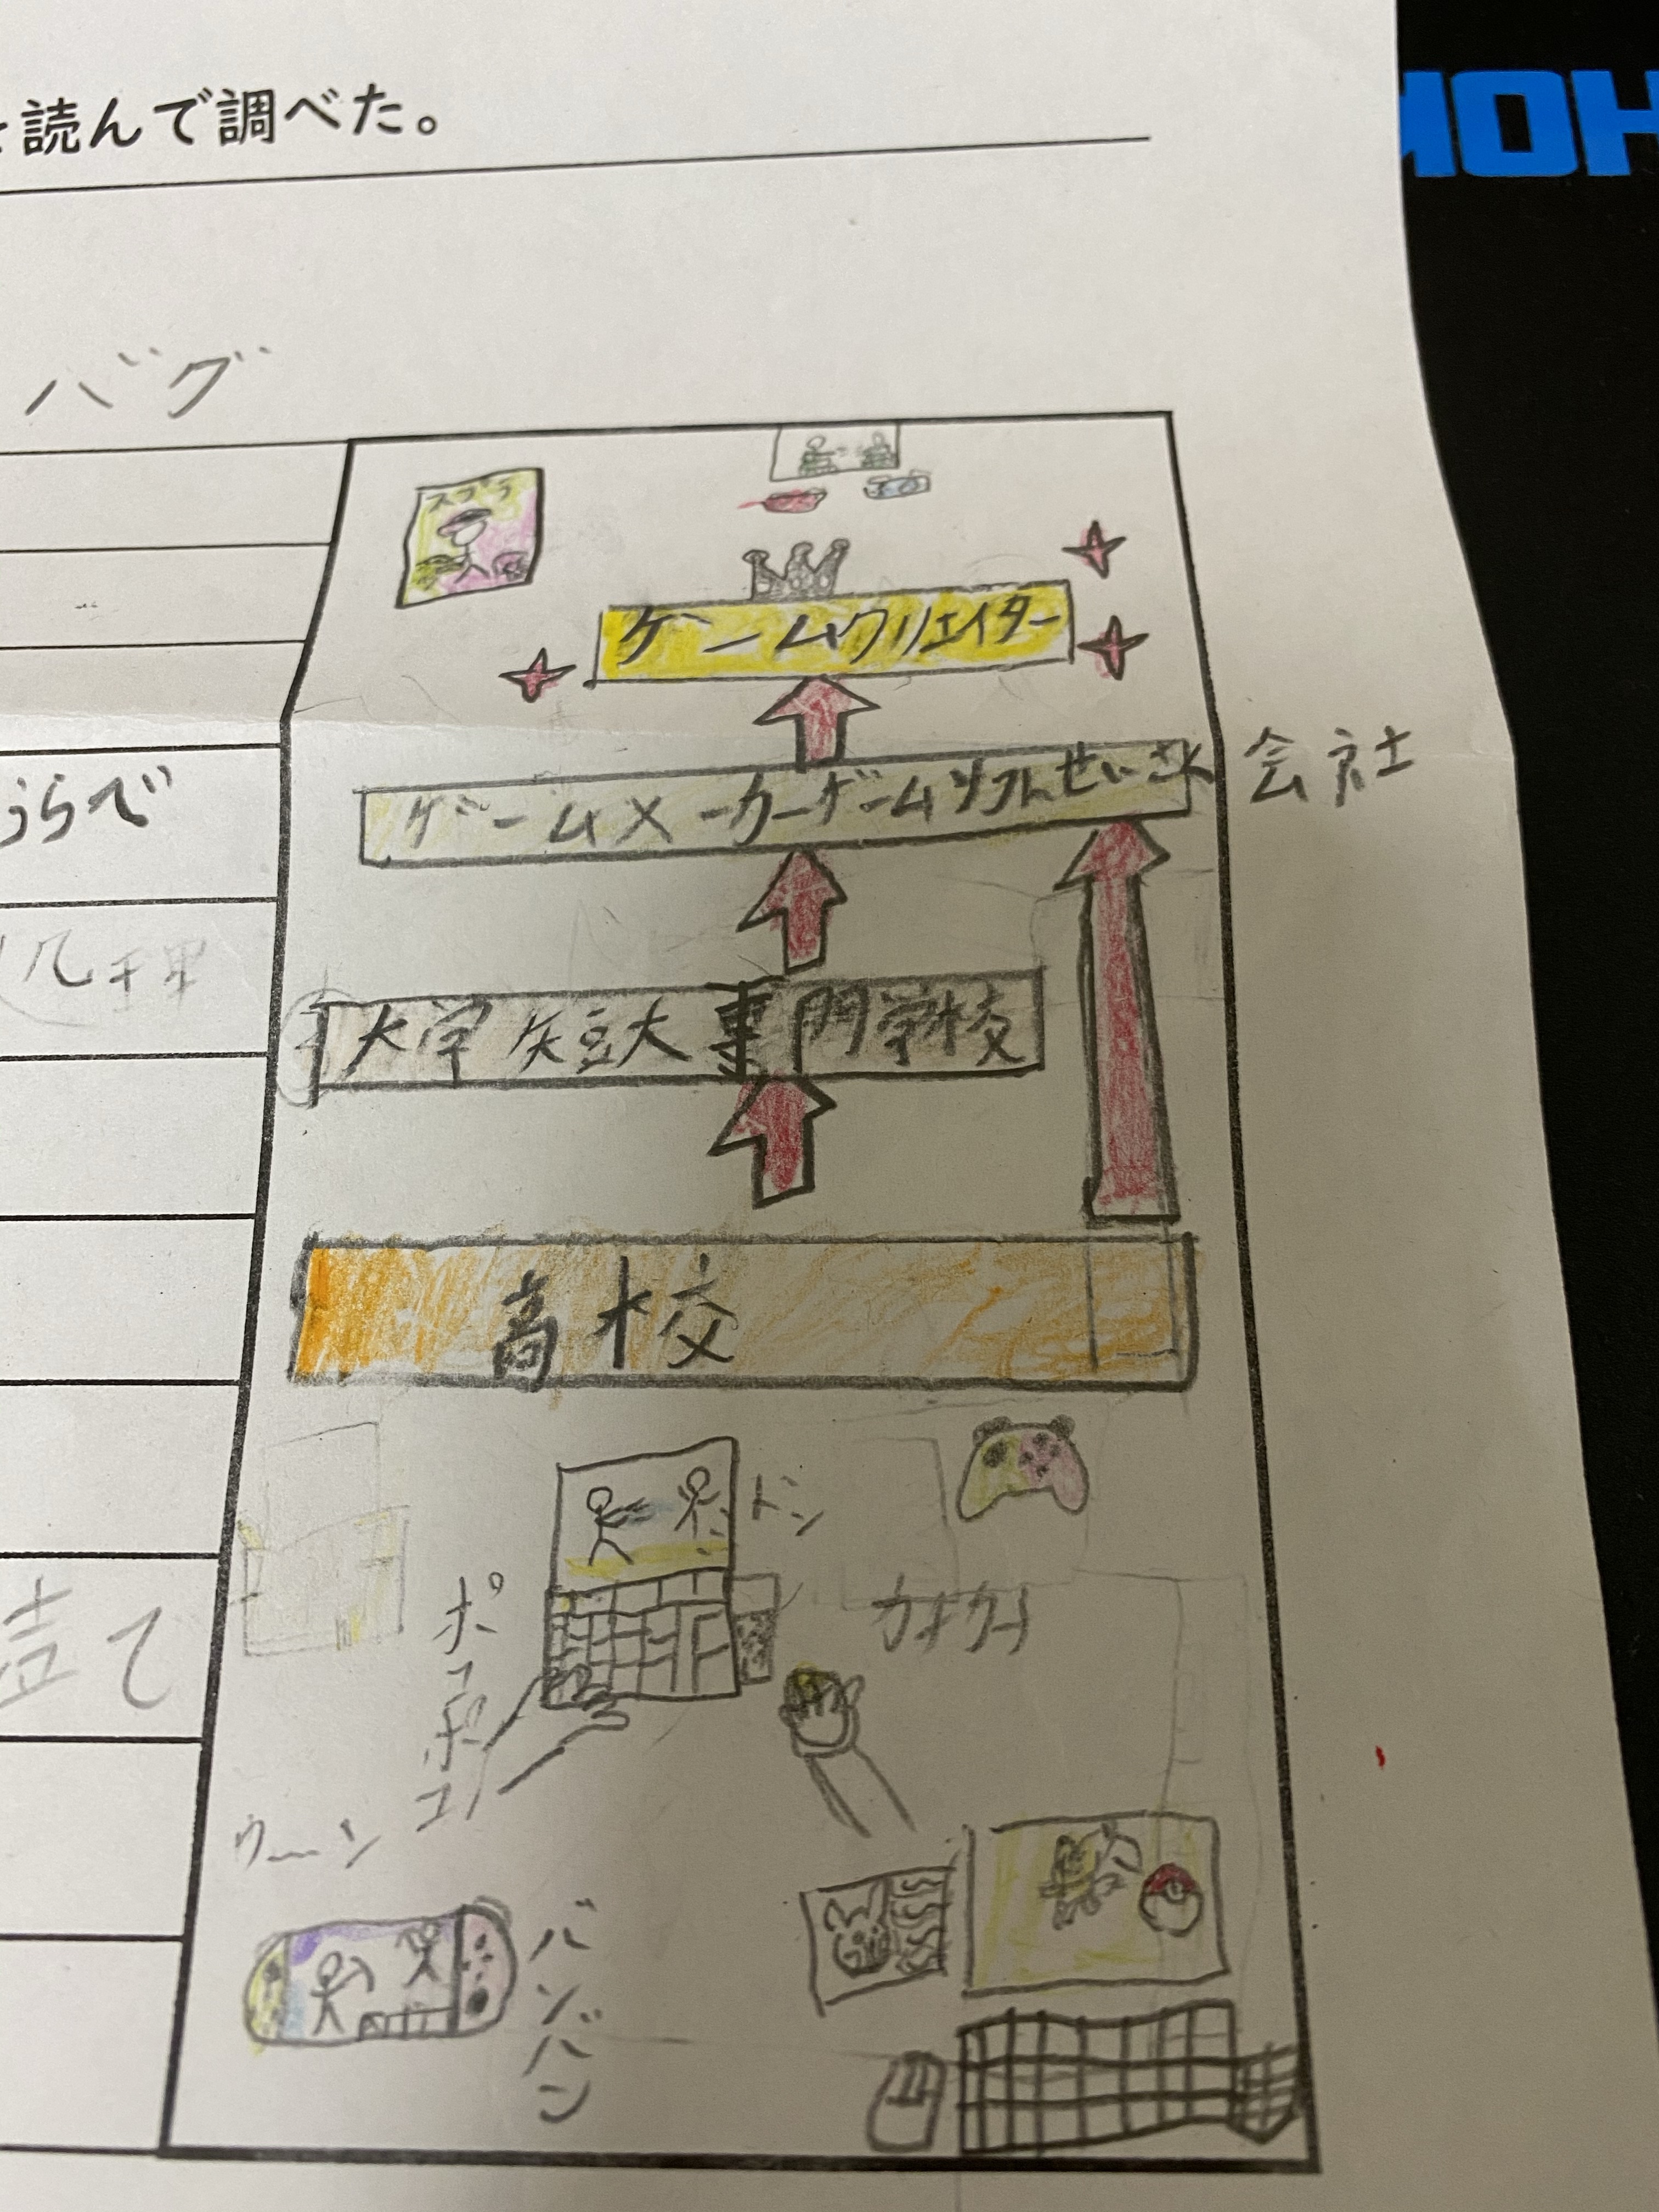 を読んで調べた。
バグ
スプラ
ゲームクリエイター
ゲームメーカーゲームソフトせいさく会社
大学 短大 専門学校
高校
ドン
カチカチ
ポコポコ
ウーン
バンバン
うらべ
立て